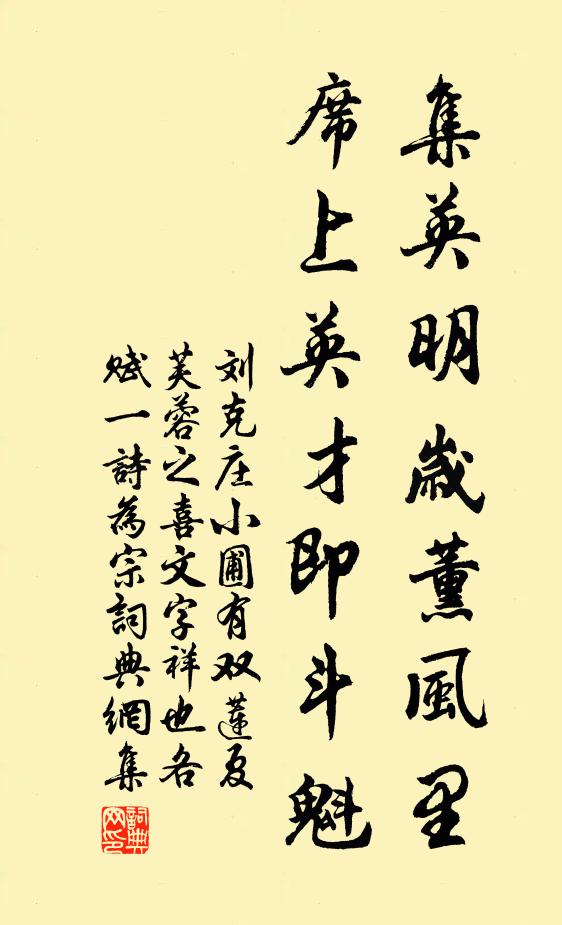 集英明歲薰風里
席上英才即斗魁
刘克庄小圃有双莲夏
芙蓉之喜文字祥也各
赋一詩為宗詞典網集
詞典网印